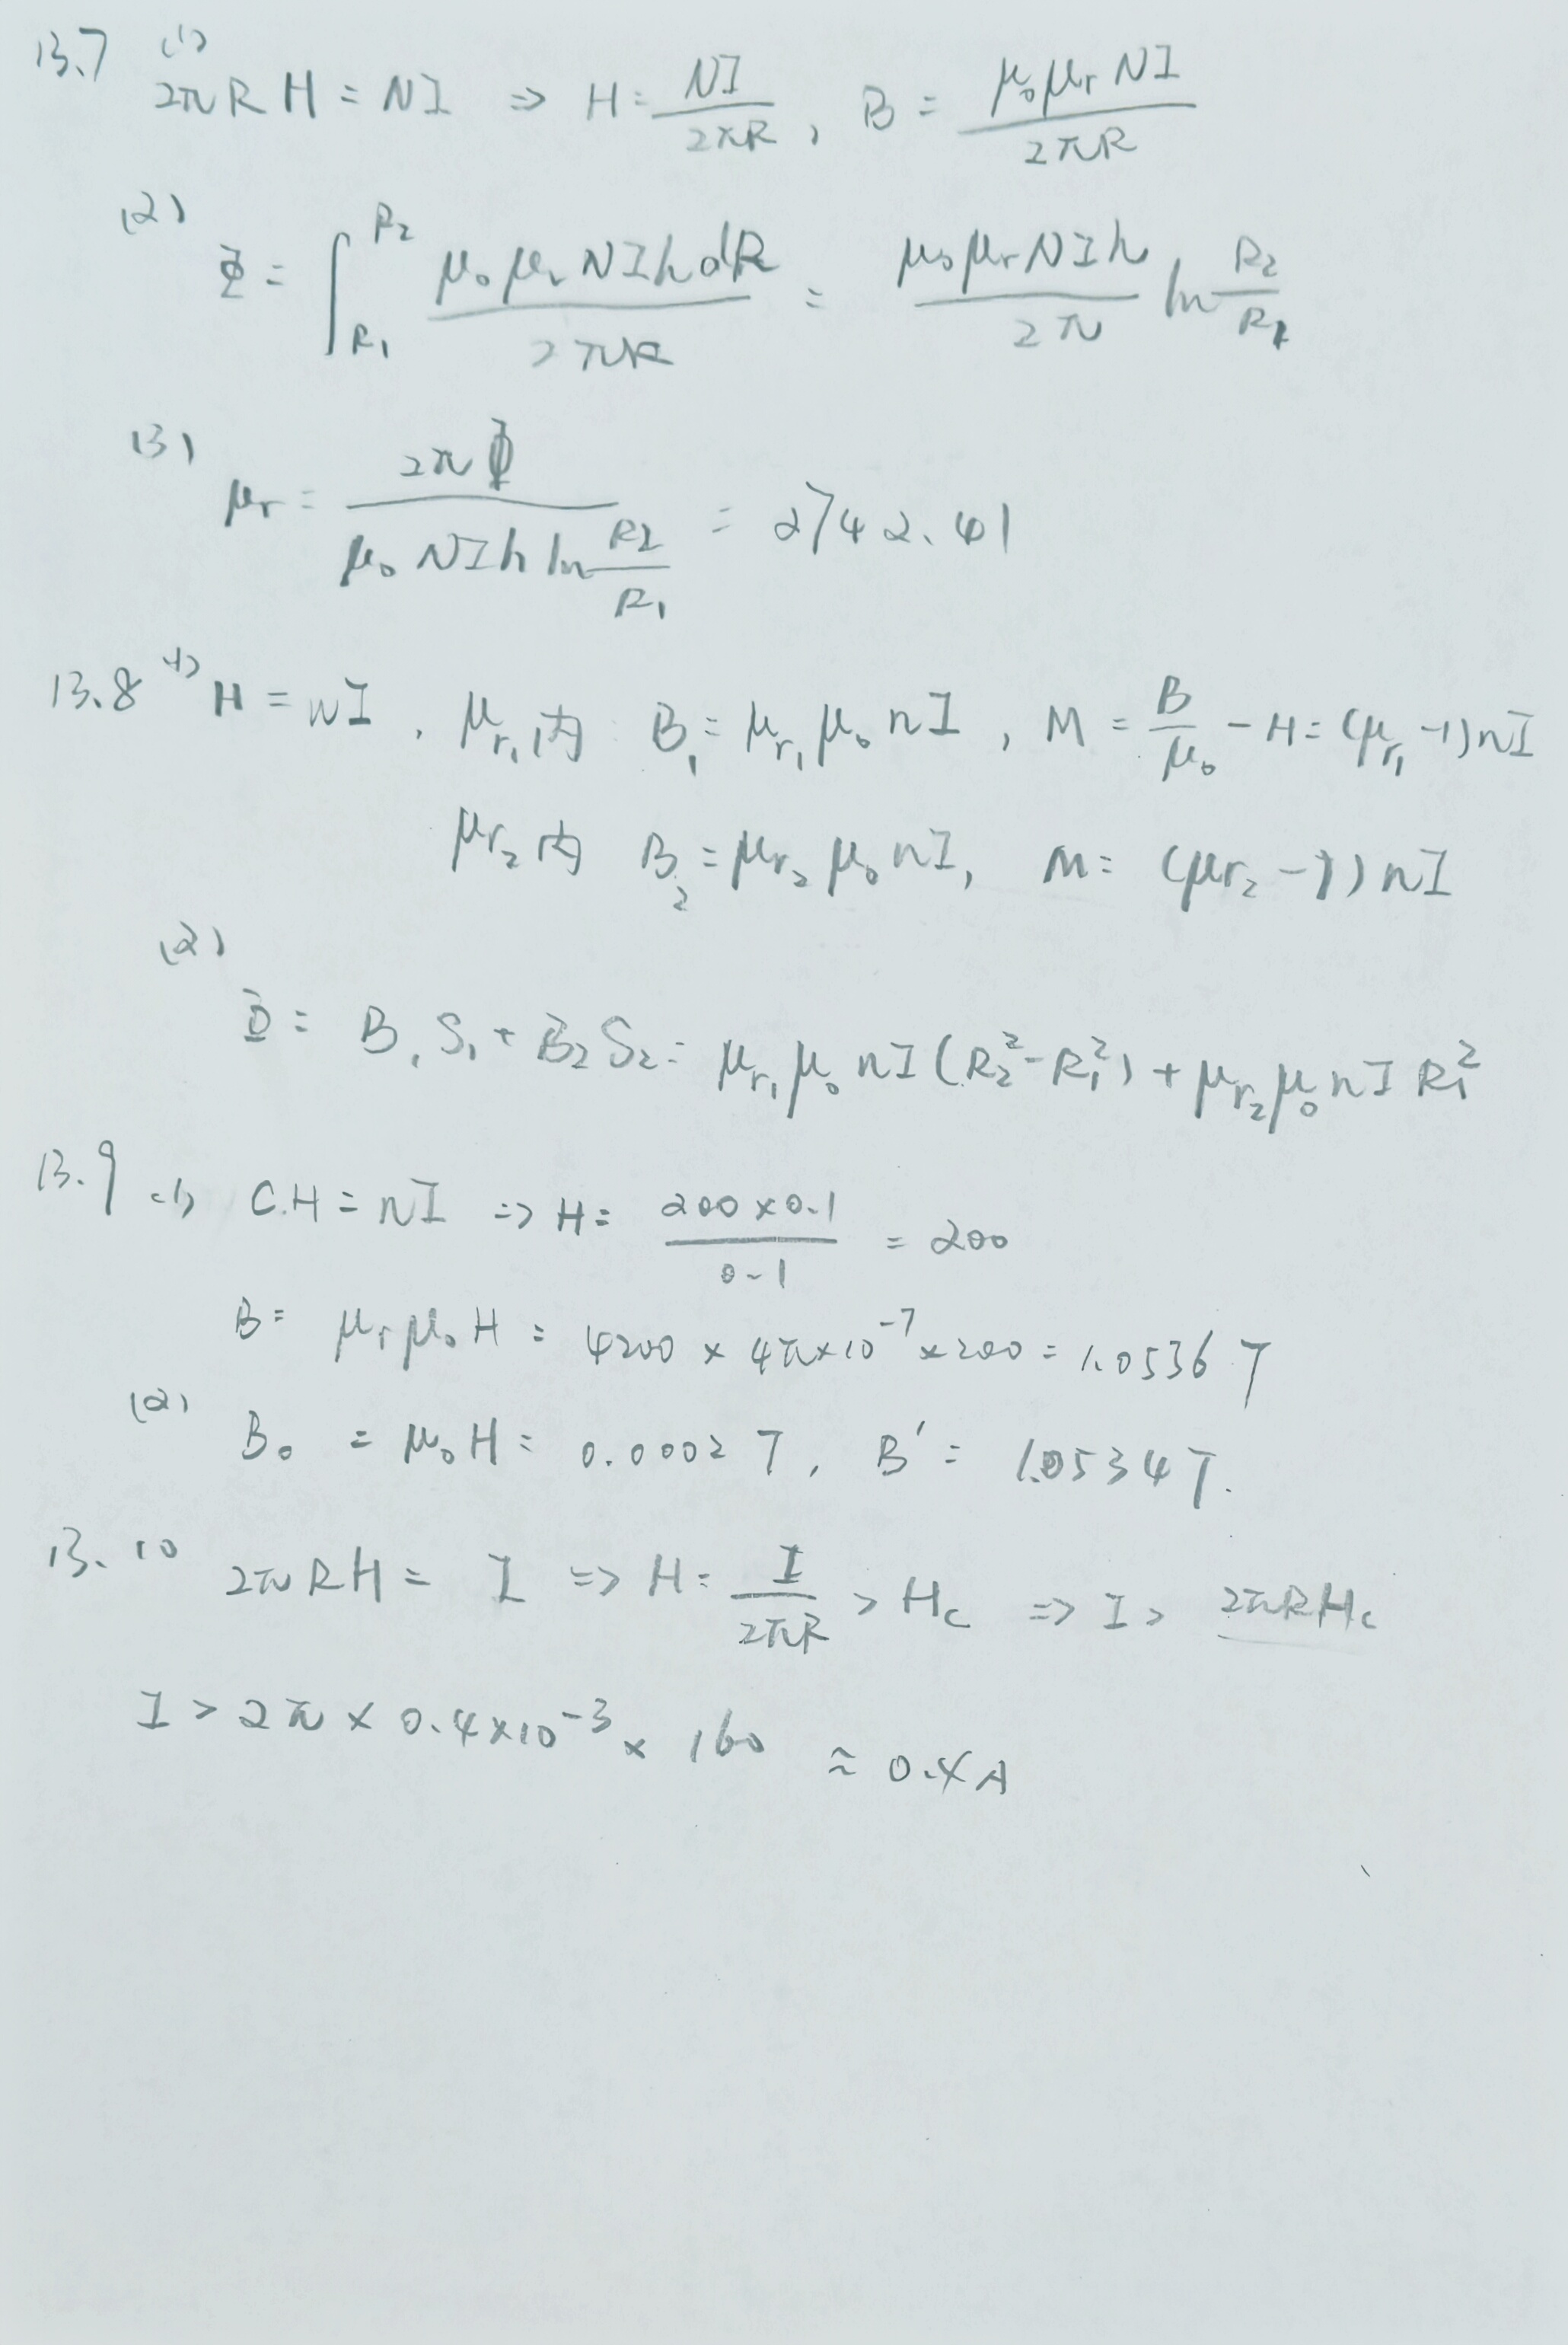 13.7 (1)
2πRH = NI ⇒ H = NI/2πR , B = μ₀μᵣNI/2πR
(2)
Φ = ∫_{R₁}^{R₂} μ₀μᵣNIhdR/2πR = μ₀μᵣNIh/2π ln R₂/R₁
(3)
μᵣ = 2πΦ/(μ₀NIh ln R₂/R₁) = 2742.41
13.8 (1) H = nI , μr₁内 B₁ = μr₁μ₀nI , M = B/μ₀ - H = (μr₁-1)nI
μr₂内 B₂ = μr₂μ₀nI, M = (μr₂-1)nI
(2)
Φ = B₁S₁ + B₂S₂ = μr₁μ₀nI(R₂²-R₁²) + μr₂μ₀nIR₁²
13.9 (1) C.H = nI ⇒ H = 200×0.1/0.1 = 200
B = μᵣμ₀H = 4200 × 4π×10⁻⁷ × 200 = 1.0536 T
(2) B₀ = μ₀H = 0.0002 T, B′ = 1.0534 T.
13.10 2πRH = I ⇒ H = I/2πR > Hc ⇒ I > 2πRHc
I > 2π × 0.4×10⁻³ × 160 ≈ 0.4A